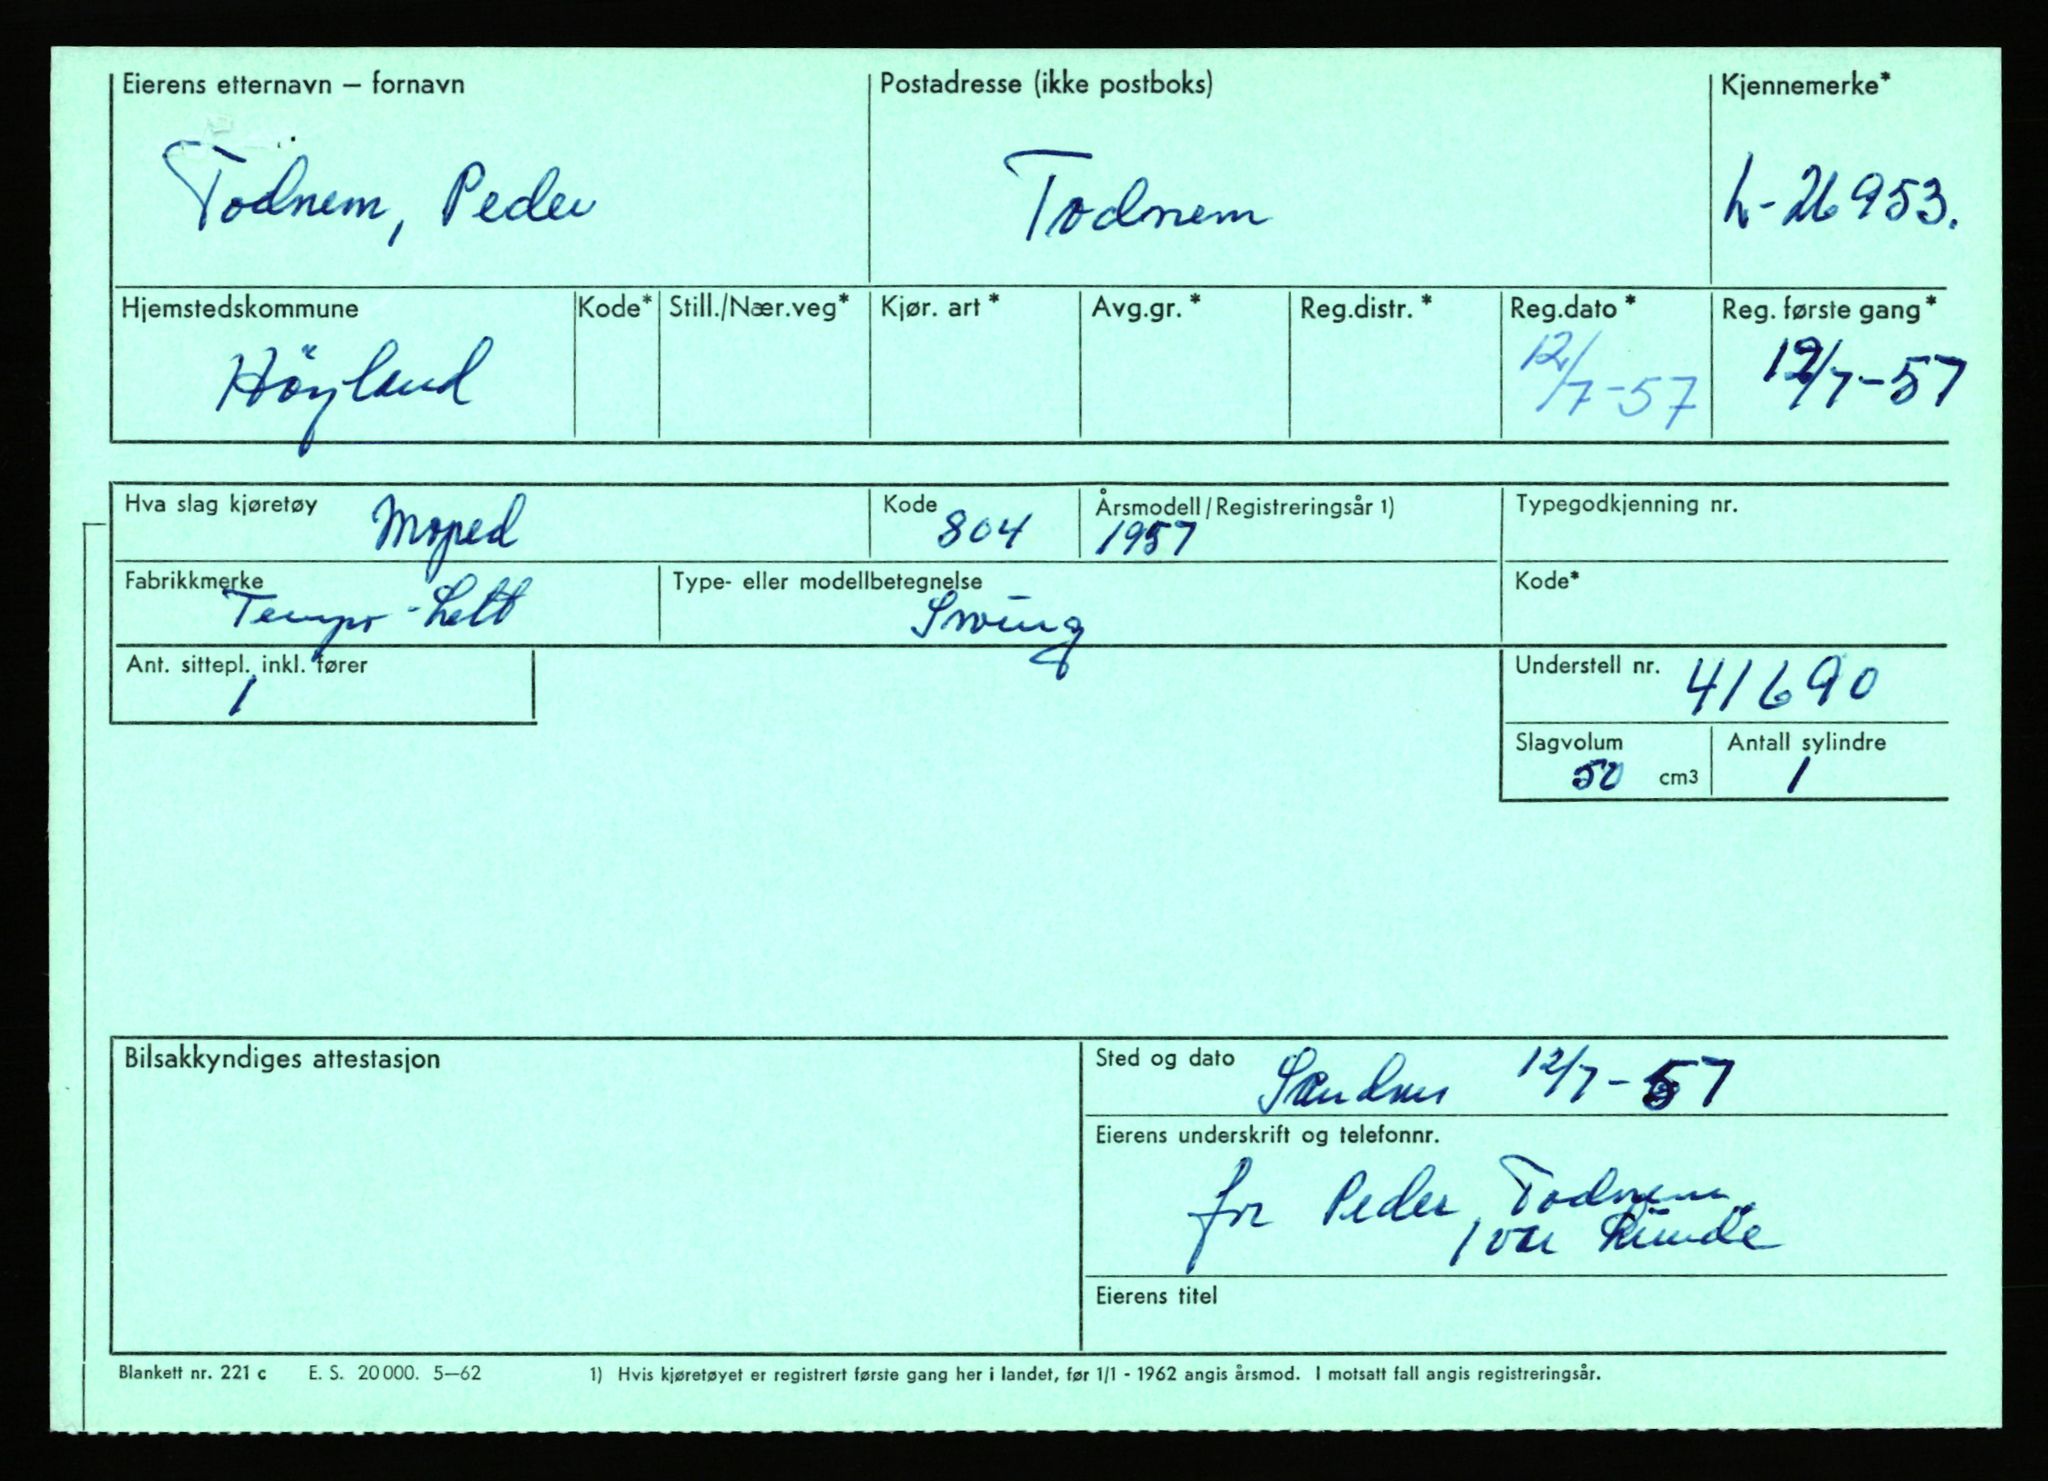 Eierens etternavn – fornavn
Postadresse (ikke postboks)
Kjennemerke*
Todnem, Peder
Todnem
L-26953.
Hjemstedskommune
Kode*
Still./Nær.veg*
Kjør. art*
Avg.gr.*
Reg.distr.*
Reg.dato*
Reg. første gang*
Höyland
12/7-57
12/7-57
Hva slag kjøretøy
Moped
Kode
804
Årsmodell/Registreringsår 1)
1957
Typegodkjenning nr.
Fabrikkmerke
Tempo-Lett
Type- eller modellbetegnelse
Swing
Kode*
Ant. sittepl. inkl. fører
1
Understell nr.
41690
Slagvolum
50 cm3
Antall sylindre
1
Bilsakkyndiges attestasjon
Sted og dato
Sandnes 12/7-57
Eierens underskrift og telefonnr.
for Peder Todnem
Ivar
Eierens titel
Blankett nr. 221 c E. S. 20 000. 5–62
1) Hvis kjøretøyet er registrert første gang her i landet, før 1/1 - 1962 angis årsmod. I motsatt fall angis registreringsår.